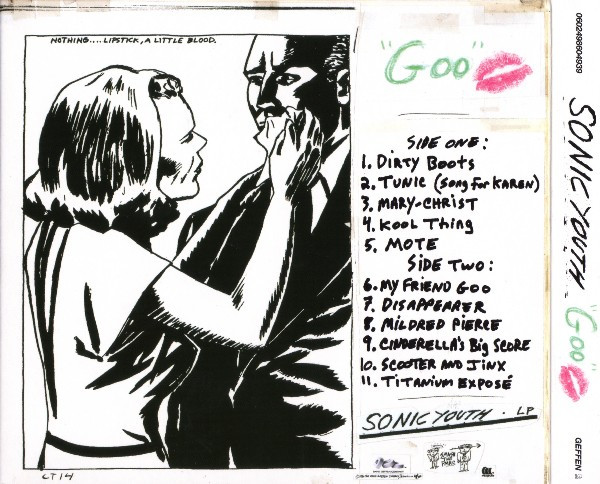 NOTHING....LIPSTICK, A LITTLE BLOOD.
"GOO"
SIDE ONE:
1. DIRTY BOOTS
2. TUNIC (Song for KAREN)
3. MARY-CHRIST
4. KOOL THING
5. MOTE
SIDE TWO:
6. MY FRIEND GOO
7. DISAPPEARER
8. MILDRED PIERCE
9. CINDERELLA'S Big SCORE
10. SCOOTER AND JINX
11. TITANIUM EXPOSÉ
SONIC YOUTH · LP
CT14
0602498604939
SONIC YOUTH
"GOO"
GEFFEN